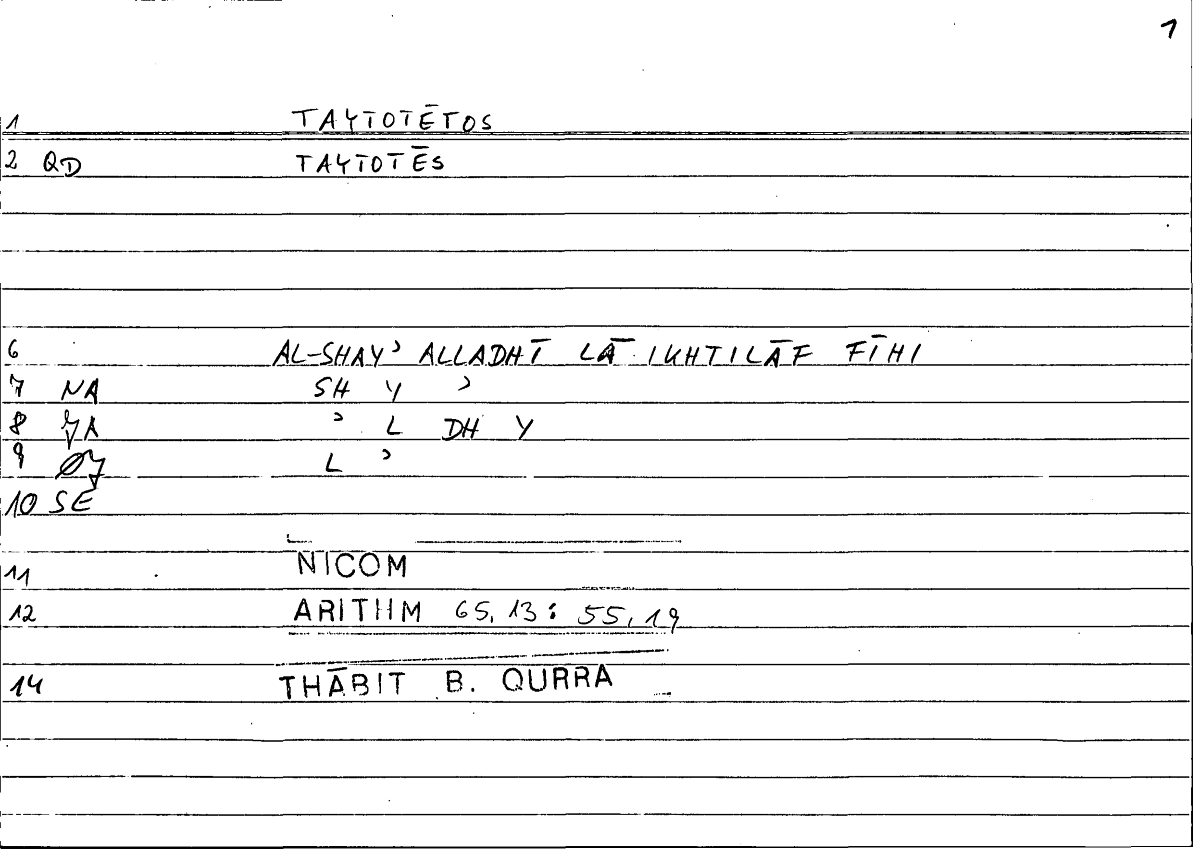 1
1 TAYTOTĒTOS
2 QD TAYTOTĒS
6 AL-SHAYʾ ALLADHĪ LĀ IKHTILĀF FĪHI
7 NA SH Y ʾ
8 JA ʾ L DH Y
9 L ʾ
10 SE
11 NICOM
12 ARITHM 65,13: 55,19
14 THĀBIT B. QURRA